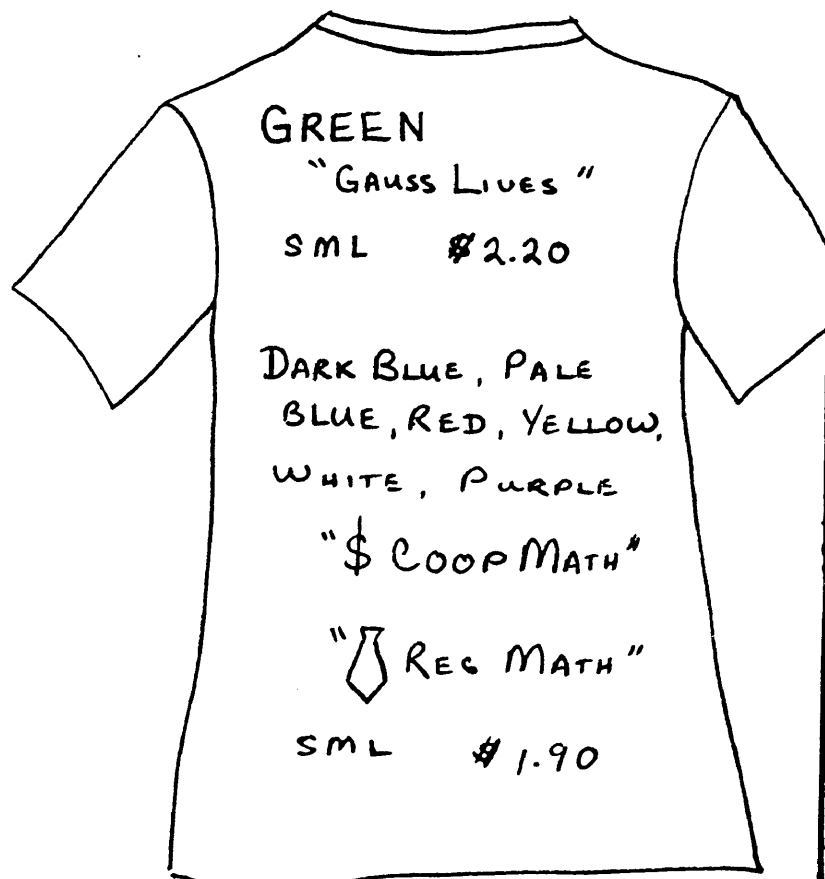 GREEN
"GAUSS LIVES"
SML $2.20
DARK BLUE, PALE
BLUE, RED, YELLOW,
WHITE, PURPLE
"$ COOP MATH"
" REG MATH"
SML $1.90